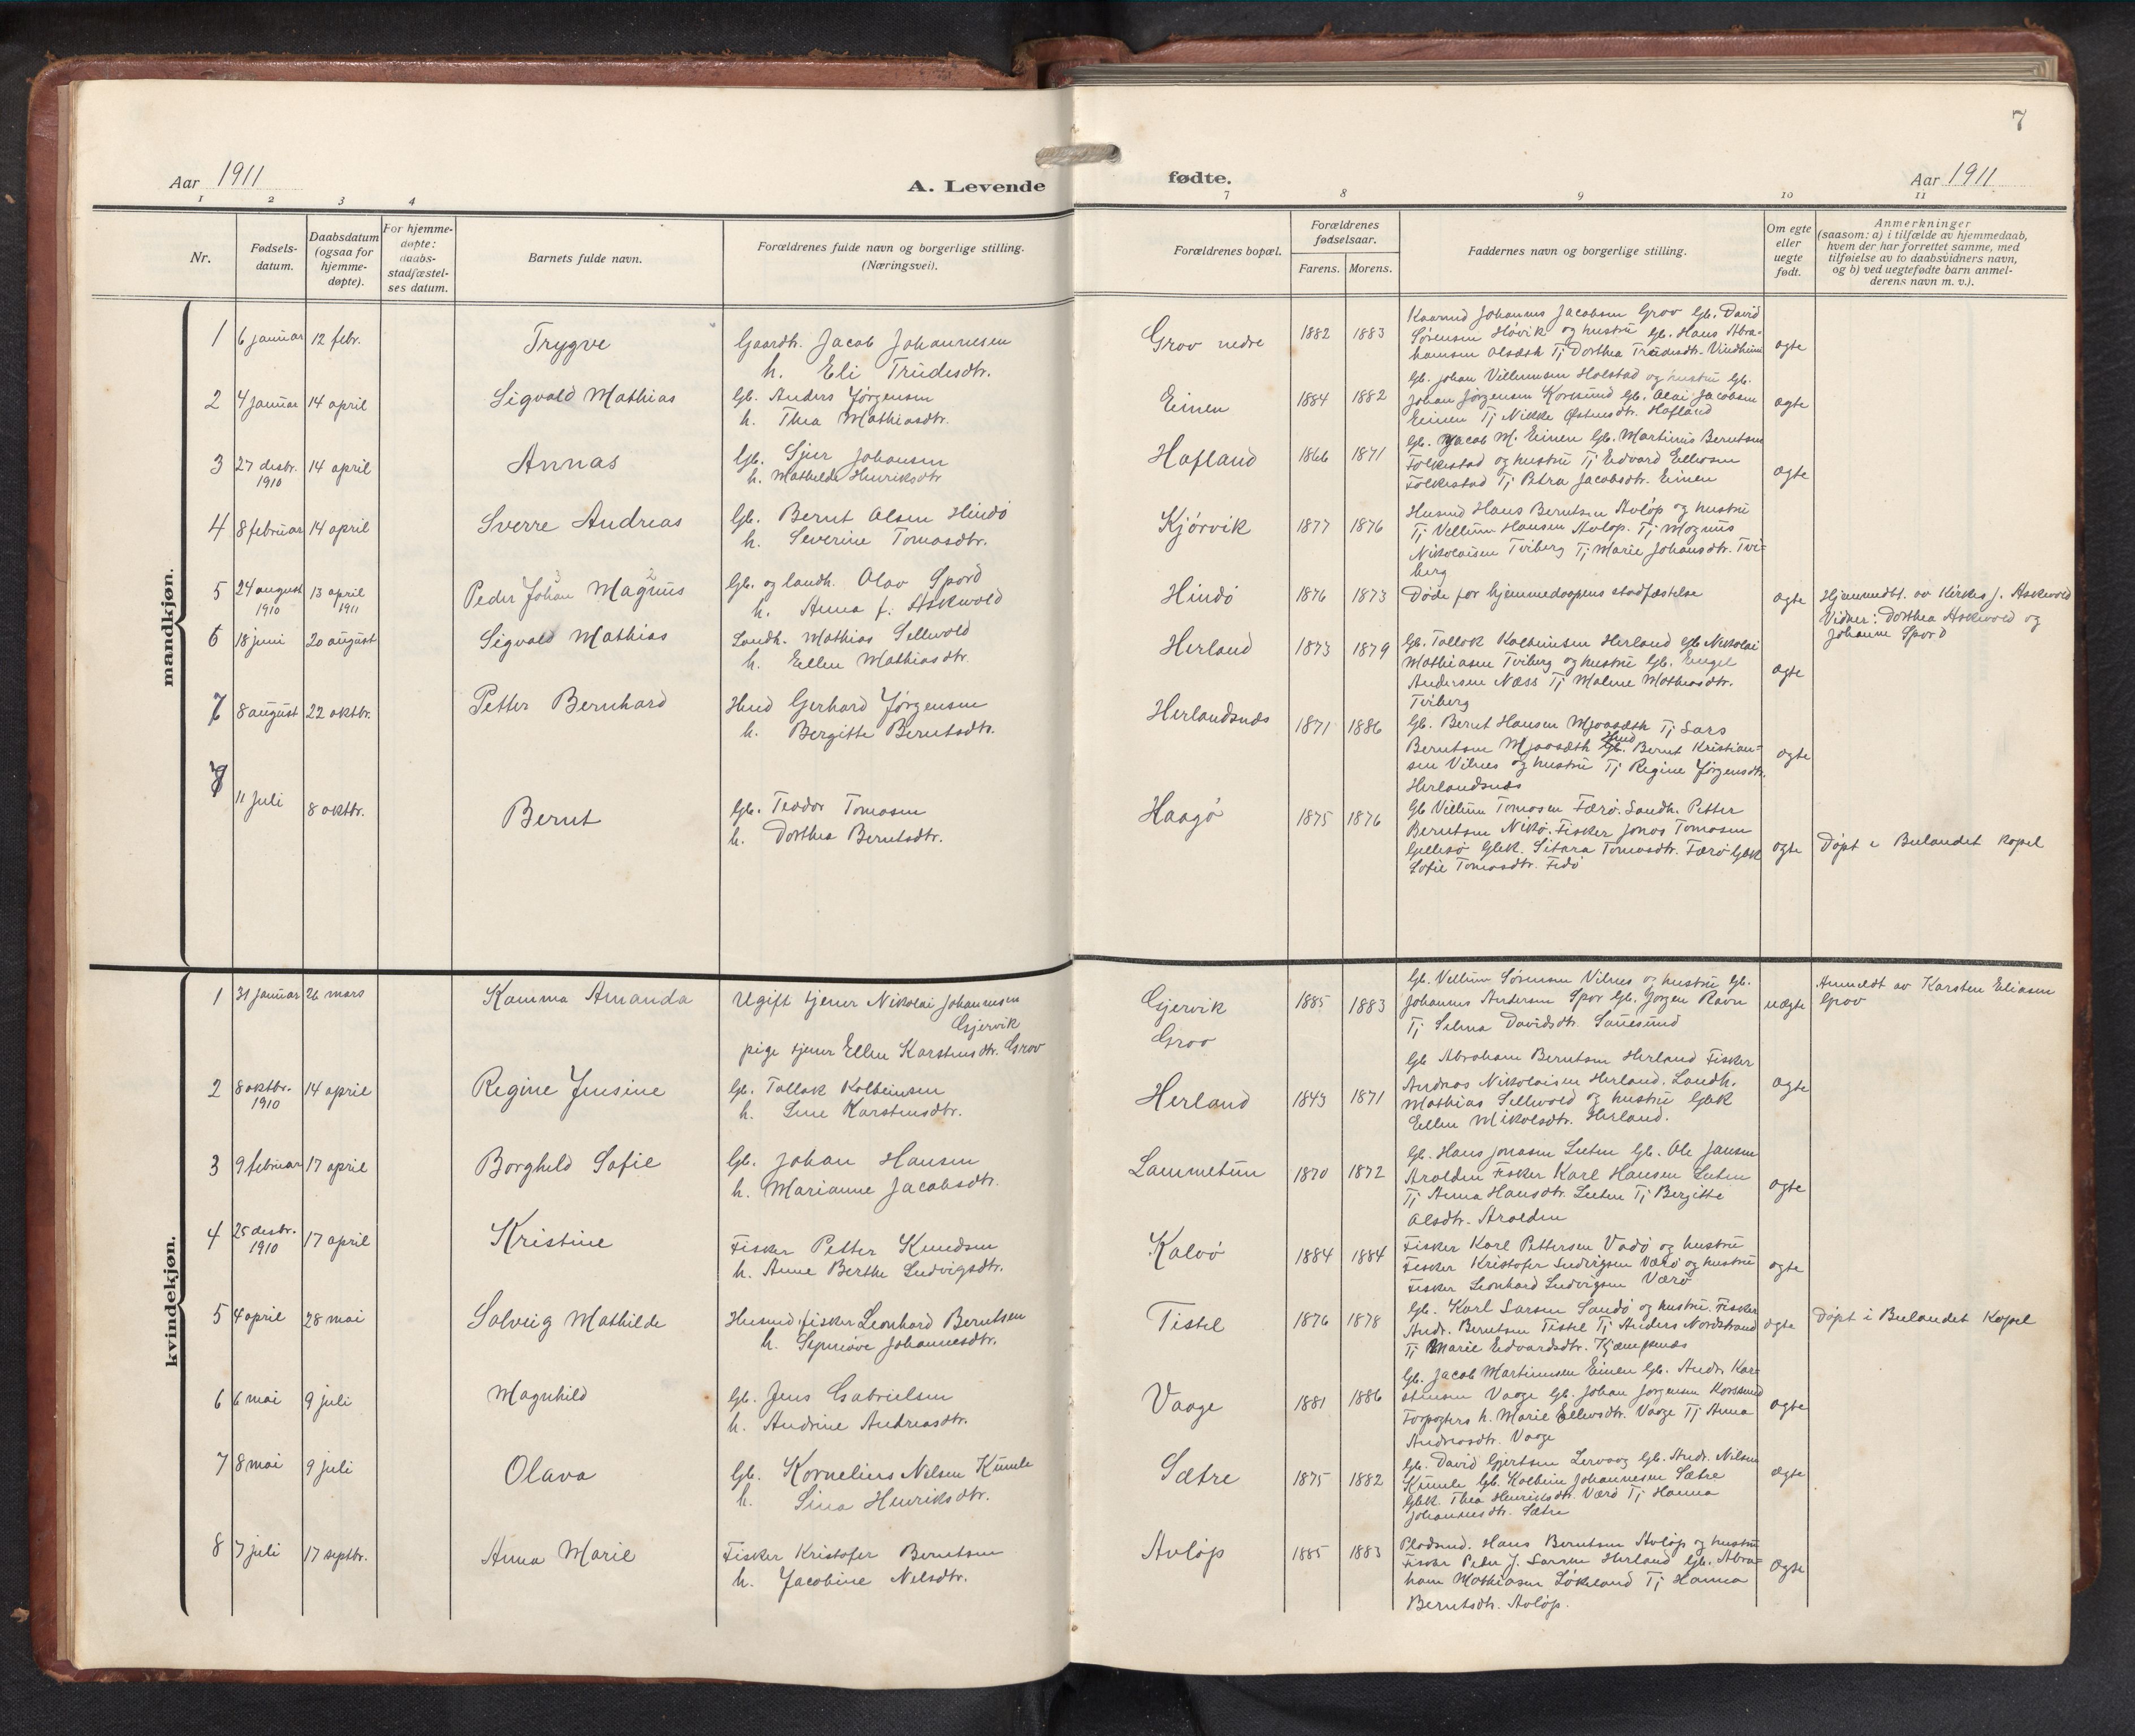 7
Aar 1911
A. Levende
fødte.
Aar 1911
1 2 3 4 7 8 9 10 11
Nr.
Fødselsdatum.
Daabsdatum (ogsaa for hjemmedøpte).
For hjemmedøpte: daabsstadfæstelses datum.
Barnets fulde navn.
Forældrenes fulde navn og borgerlige stilling. (Næringsvei).
Forældrenes bopæl.
Forældrenes fødselsaar.
Farens. Morens.
Faddernes navn og borgerlige stilling.
Om egte eller uegte født.
Anmerkninger
(saasom: a) i tilfælde av hjemmedaab,
hvem der har forrettet samme, med
tilføielse av to daabsvidners navn,
og b) ved uegtefødte barn anmelderens navn m. v.).
mandkjøn.
1 6 januar 12 febr. Trygve
Gaardbr. Jacob Johannesen
h. Eli Trudesdtr.
Grov nedre 1882 1883
Kaarmd Johannes Jacobsen Grov Gb. David
Sørensen Høvik og hustru Gb. Hans Abra-
hamsen Olsæth Tj Dorthea Trudesdtr. Vindheim
ægte
2 4 januar 14 april Sigvald Mathias
Gb. Anders Jørgensen
h. Thea Mathiasdtr.
Einen 1884 1882
Gb. Johan Villumsen Holstad og hustru Gb.
Johan Jørgensen Korssund Gb. Olai Jacobsen
Einen Tj Nikke Østensdtr. Hofland
ægte
3 27 desbr. 1910 14 april Annas
Gb. Sjur Johansen
h. Mathilde Henriksdtr
Hofland 1866 1871
Gb. Jacob M. Einen Gb. Martinus Berntsen
Folkestad og hustru Tj Edvard Ellevsen
Folkestad Tj Petra Jacobsdtr. Einen
ægte
4 8 februar 14 april Sverre Andreas
Gb. Bernt Olsen Hindø
h. Severine Tomasdtr.
Kjørvik 1877 1876
Husmd Hans Berntsen Avløp og hustru
Tj Vellum Hansen Avløp. Tj Magnus
Nikolaisen Tviberg Tj Marie Johansdtr. Tvi-
berg
5 24 august 1910 13 april 1911 Peder Johan Magnus
Gb. og landh. Olav Spord
h. Anna f. Askvold
Hindø 1876 1873
Døde før hjemmedaapens stadfæstelse
ægte
Hjemmedt. av Kirkes. J. Askevold
Vidner: Dorthea Askevold og
Johanne Spord
6 18 juni 20 august Sigvald Mathias
Landh. Mathias Sellevold
h. Ellen Mathiasdtr.
Herland 1873 1879
Gb. Tollak Kolbeinsen Herland Gb Nikolai
Mathiasen Tviberg og hustru Gb. Engel
Andersen Næss Tj Malene Mathiasdtr.
Tviberg
ægte
7 8 august 22 oktbr. Petter Bernhard
Husmd Gerhard Jørgensen
h. Bergitte Berntsdtr.
Herlandsnæs 1871 1886
Gb. Bernt Hansen Mjaasæth Tj Lars
Berntsen Mjaasæth Husmd Bernt Kristian-
sen Vilnes og hustru Tj Regine Jørgensdtr.
Herlandsnæs
ægte
8 11 juli 8 oktbr. Bernt
Gb. Teodor Tomasen
h. Dorthea Berntsdtr.
Haagø 1875 1876
Gb Vellum Tomasen Færø. Landh. Petter
Berntsen Nikø. Fisker Jonas Tomasen
Gjelesø Gbk. Sitara Tomasdtr. Færø Gbk
Sofie Tomasdtr. Fedø
ægte
Døpt i Bulandet kapel
kvindekjøn.
1 31 januar 26 mars Kamma Amanda
Ugift tjener Nikolai Johannesen
Gjervik
pige tjener Ellen Karstensdtr. Grov
Gjervik
Grov
1885 1883
Gb. Vellum Sørensen Vilnes og hustru Gb.
Johannes Andersen Spor Gb. Jørgen Ravn
Tj Selma Davidsdtr. Sauesund
uægte
Anmeldt av Karsten Eliasen
Grov
2 8 oktbr. 1910 14 april Regine Jensine
Gb. Tollak Kolbeinsen
h. Line Karstensdtr.
Herland 1843 1871
Gb Abraham Berntsen Herland Fisker
Andreas Nikolaisen Herland. Landh.
Mathias Sellevold og hustru Gbk
Ellen Mikalsdtr. Herland.
ægte
3 9 februar 17 april Borghild Sofie
Gb. Johan Hansen
h. Marianne Jacobsdtr.
Lammetun 1870 1872
Gb. Hans Jonasen Luten Gb. Ole Jansen
Aralden Fisker Karl Hansen Luten
Tj Anna Hansdtr. Luten Tj Bergitte
Olsdtr. Aralden
ægte
4 25 desbr. 1910 17 april Kristine
Fisker Petter Knudsen
h. Anne Berthe Ludvigsdtr.
Kalvø 1884 1884
Fisker Karl Pettersen Vadø og hustru
Fisker Kristofer Ludvigsen Værø og hustru
Fisker Leonhard Ludvigsen Værø
ægte
5 4 april 28 mai Solveig Mathilde
Husmd fisker Leonhard Berntsen
h. Synnøve Johannesdtr.
Tistel 1876 1878
Gb. Karl Larsen Sandø og hustru. Fisker
Andr. Berntsen Tistel Tj Anders Nordstrand
Tj Marie Edvardsdtr. Kjempenæs
ægte
Døpt i Bulandet Kapel
6 6 mai 9 juli Magnhild
Gb. Jens Gabrielsen
h. Andrine Andreasdtr.
Vaage 1881 1886
Gb. Jacob Martinusen Einen Gb. Andr. Kar-
stensen Vaage Gb. Johan Jørgensen Korssund
Forpagters h. Marie Ellevsdtr. Vaage Tj Anna
Andreasdtr. Vaage
ægte
7 8 mai 9 juli Olava
Gb. Kornelius Nilsen Kumle
h. Sina Henriksdtr.
Sætre 1875 1882
Gb. David Gjertsen Lervaag Gb. Andr. Nilsen
Kumle Gb. Kolbein Johannesen Sætre
Gbk. Thea Henriksdtr. Værø Tj Hanna
Johannesdtr. Sætre
ægte
8 7 juli 17 septbr. Anna Marie
Fisker Kristofer Berntsen
h. Jacobine Nelsdtr.
Avløp 1885 1883
Pladsmd. Hans Berntsen Avløp og hustru
Fisker Peder J. Larsen Herland Gb. Abra-
ham Mathiasen Løkeland Tj Hanna
Berntsdtr. Avløp.
ægte